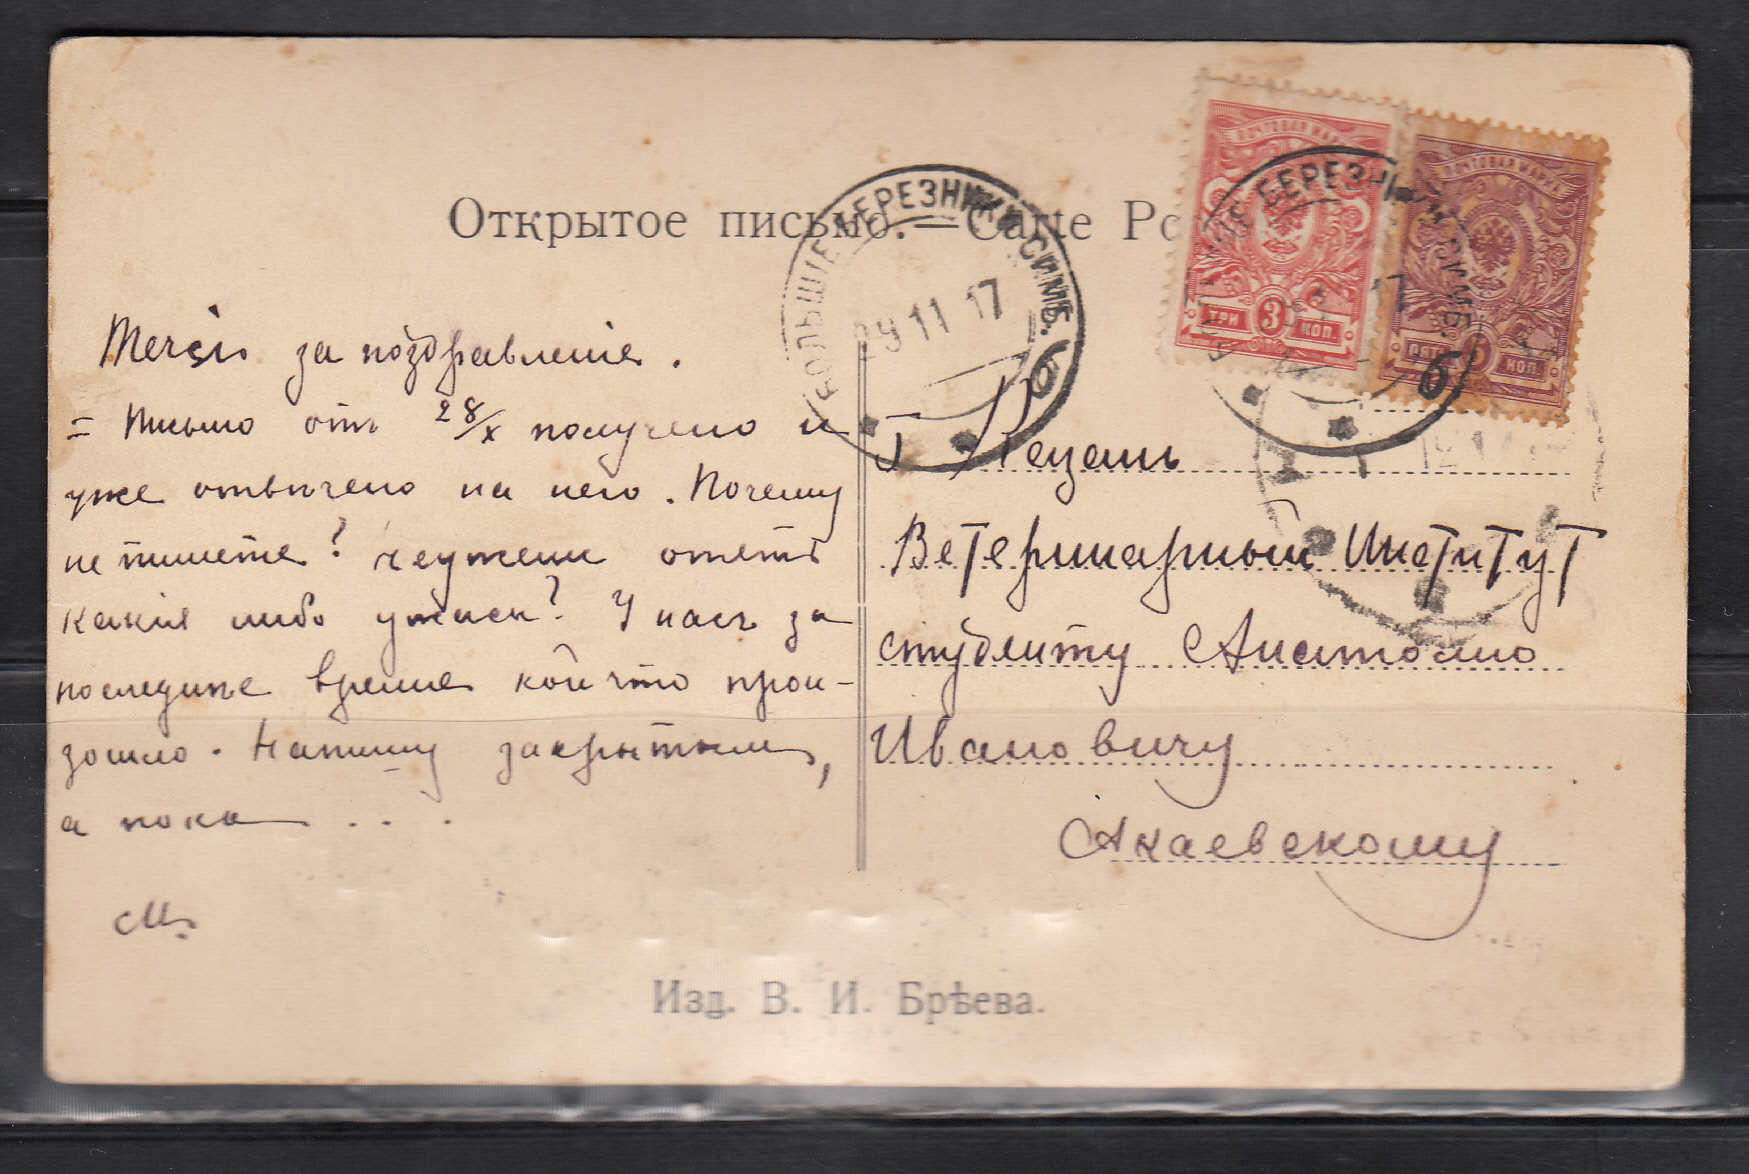 Открытое письмо. — Carte Po
БОЛЬШЕ БЕРЕЗНИКИ СИМБ.
29 11 17
б
ПОЧТОВАЯ МАРКА
ТРИ 3 КОП.
ПОЧТОВАЯ МАРКА
ПЯТЬ 5 КОП.
БЕРЕЗНИКИ СИМБ.
б
Merci за поздравленіе.
= Письмо отъ 28/X получено и
уже отвѣчено на него. Почему
не пишете? Неужели опять
какія либо ужасы? У насъ за
последнее время кой что прои-
зошло. Напишу закрытым,
а пока . . .
М.
Г. Казань
Ветеринарный Институт
студенту Анатолию
Ивановичу
Акаевскому
Изд. В. И. Брѣева.